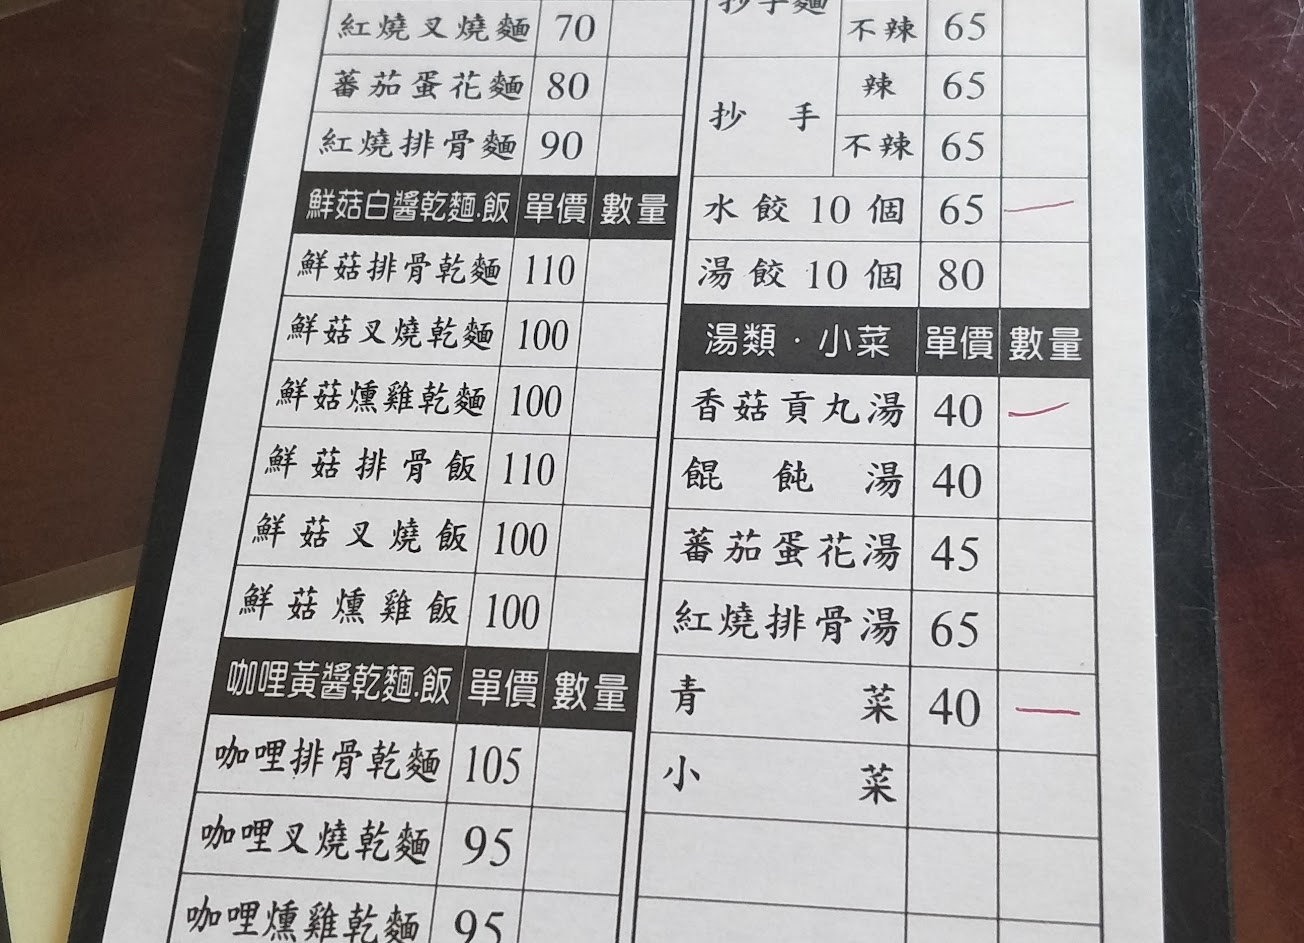 紅燒叉燒麵 70
蕃茄蛋花麵 80
紅燒排骨麵 90
鮮菇白醬乾麵.飯 單價 數量
鮮菇排骨乾麵 110
鮮菇叉燒乾麵 100
鮮菇燻雞乾麵 100
鮮菇排骨飯 110
鮮菇叉燒飯 100
鮮菇燻雞飯 100
咖哩黃醬乾麵.飯 單價 數量
咖哩排骨乾麵 105
咖哩叉燒乾麵 95
咖哩燻雞乾麵 95
抄手麵 不辣 65
抄手 辣 65
不辣 65
水餃10個 65
湯餃10個 80
湯類·小菜 單價 數量
香菇貢丸湯 40
餛飩湯 40
蕃茄蛋花湯 45
紅燒排骨湯 65
青菜 40
小菜